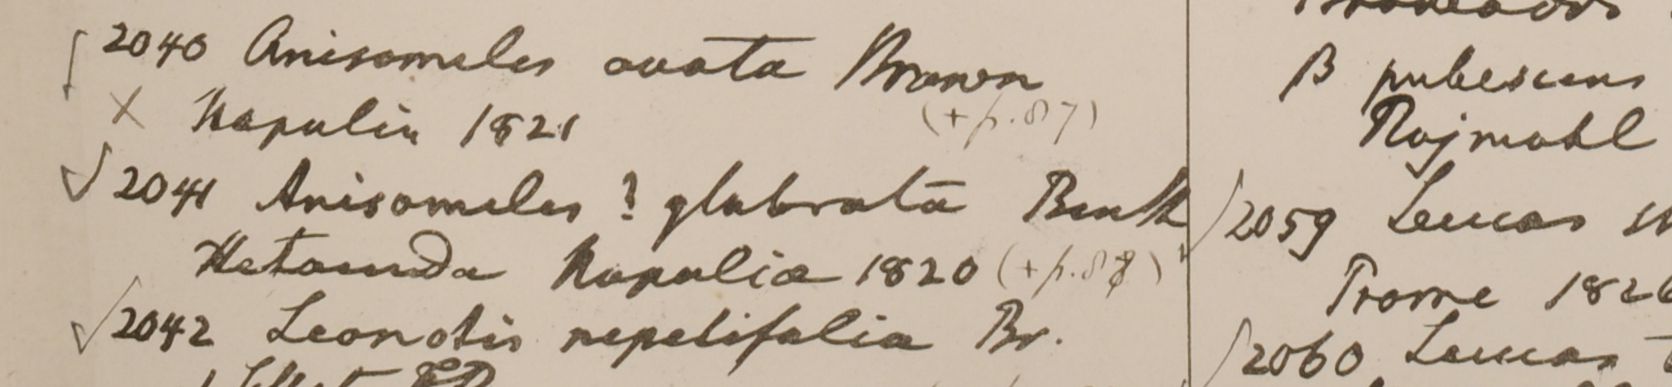 2040 Anisomeles ovata Brown
X Napalia 1821 (+p.87)
2041 Anisomeles ? glabrata Benth
Hetounda Napalia 1820 (+p.88)
2042 Leonotis nepetifolia Br.
β pubescens
Rajmahl
2059 Leucas
Prome 1826
2060 Leucas